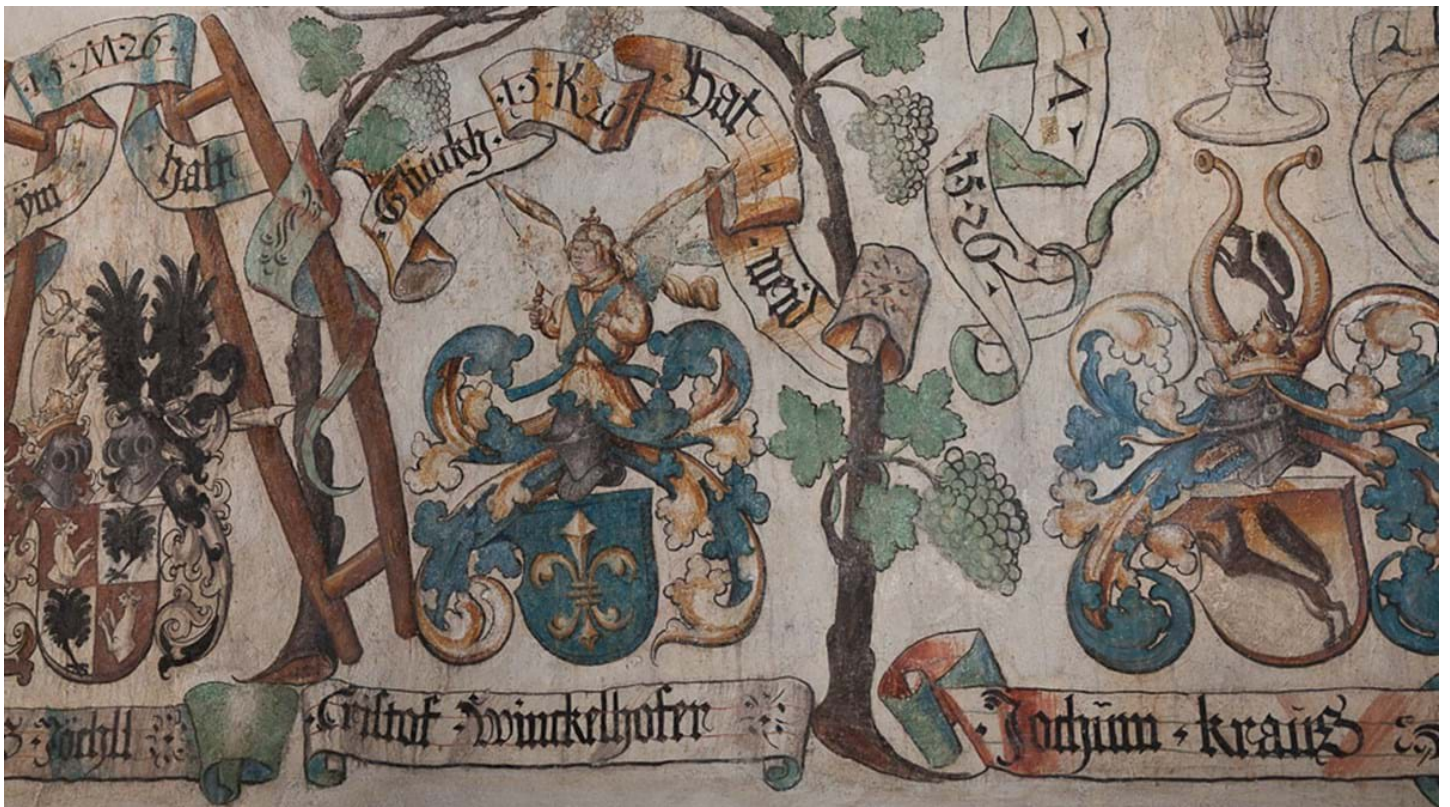 ·15·M·26·
ÿm
halt
Glückh· ·15·K·26 hat neid
A
·15·26·
S·Jöchll
·Cristof·Winckelhofer
·Jochüm·kraüß